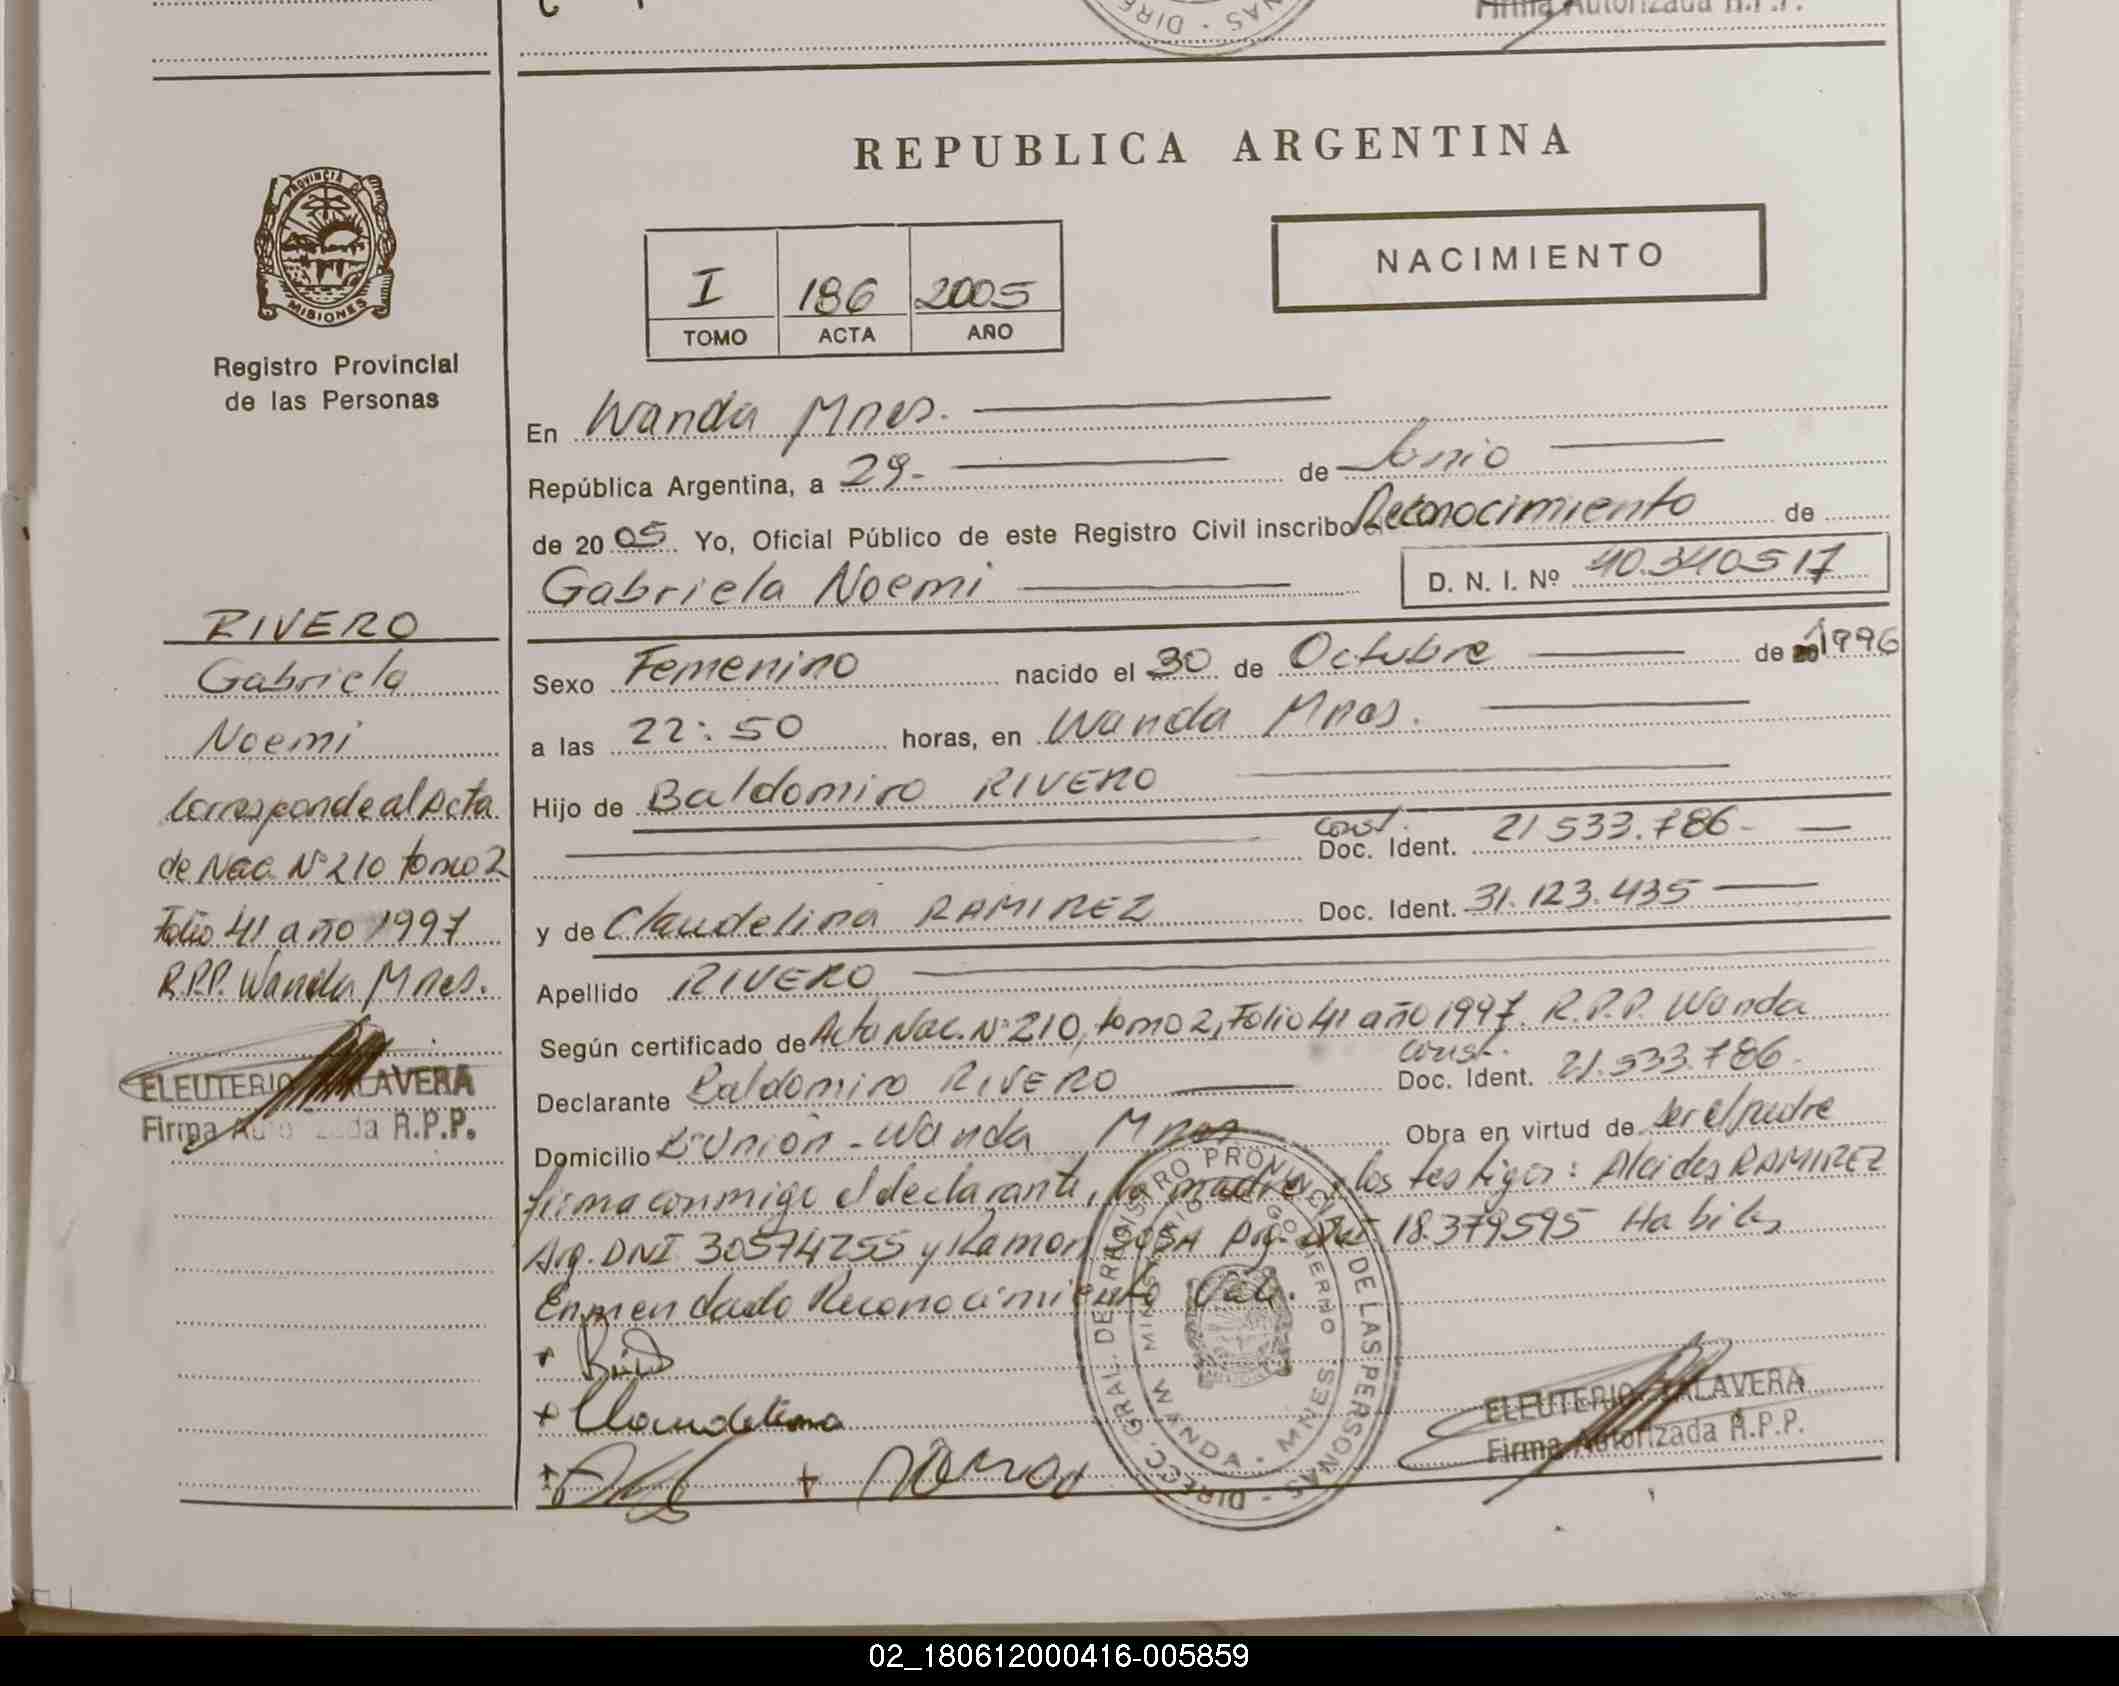 Firma Autorizada R.P.P.
REPUBLICA ARGENTINA
PROVINCIA DE
MISIONES
Registro Provincial
de las Personas
I 186 2005
TOMO ACTA AÑO
NACIMIENTO
En Wanda Mnes.
República Argentina, a 29- de Junio
de 2005 Yo, Oficial Público de este Registro Civil inscribo Reconocimiento de
Gabriela Noemi D. N. I. Nº 40.340517
RIVERO
Gabriela
Noemi
Corresponde al Acta
de Nac. Nº 210 tomo 2
Folio 41 año 1997
R.P.P. Wanda Mnes.
ELEUTERIO TALAVERA
Firma Autorizada R.P.P.
Sexo Femenino nacido el 30 de Octubre de 1996
a las 22:50 horas, en Wanda Mnes.
Hijo de Baldomiro RIVERO
Const.
Doc. Ident. 21 533.786-
y de Claudelina RAMIREZ Doc. Ident. 31.123.435
Apellido RIVERO
Según certificado de Acta Nac. Nº 210, tomo 2, Folio 41 año 1997. R.P.P. Wanda
Const.
Declarante Baldomiro RIVERO Doc. Ident. 21.533.786-
Domicilio Bº Unión - Wanda Mnes Obra en virtud de ser el padre
firma conmigo el declarante, la madre y los testigos: Alcides RAMIREZ
Arg. DNI 30574255 y Ramon SOSA Arg. DNI 18.379595 Habiles
Enmendado Reconocimiento Vale.
+ Claudelina
+ Ramon
DIREC. GRAL. DE REGISTRO PROVINCIAL DE LAS PERSONAS
MINISTERIO GOBIERNO
WANDA - MNES.
ELEUTERIO TALAVERA
Firma Autorizada R.P.P.
02_180612000416-005859